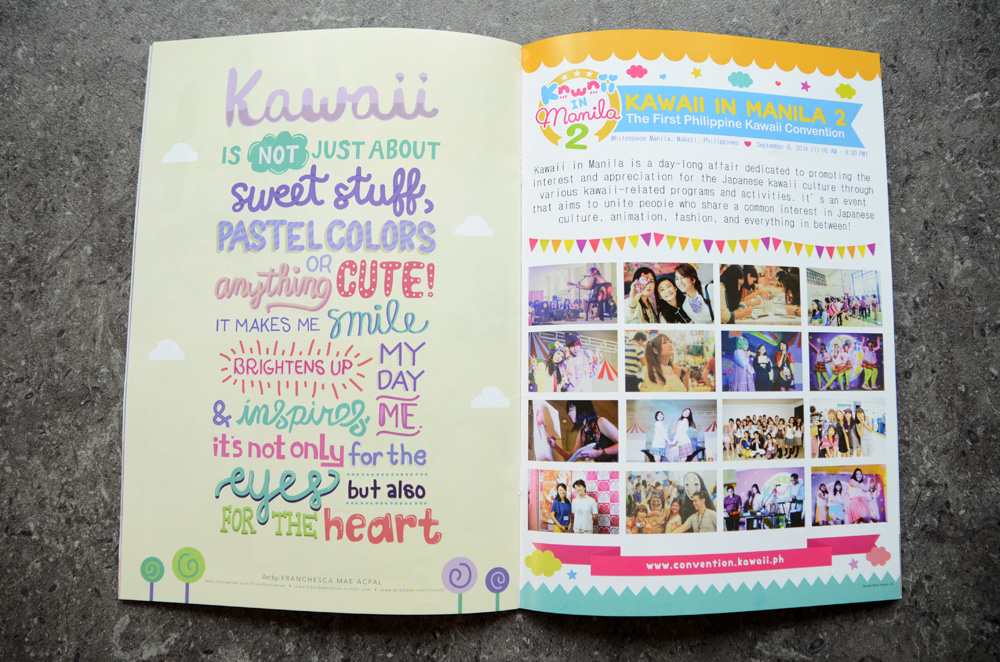 Kawaii
IS NOT JUST ABOUT
sweet stuff,
PASTEL COLORS
OR
anything CUTE!
IT MAKES ME smile
BRIGHTENS UP MY DAY
& inspires ME.
it's not only for the
eyes but also
FOR THE heart
Art by FRANCHESCA MAE ACPAL
Kawaii
IN
Manila
2
KAWAII IN MANILA 2
The First Philippine Kawaii Convention
Whitespace Manila, Makati, Philippines September 6, 2014 (11:00 AM - 9:00 PM)
Kawaii in Manila is a day-long affair dedicated to promoting the
interest and appreciation for the Japanese kawaii culture through
various kawaii-related programs and activities. It's an event
that aims to unite people who share a common interest in Japanese
culture, animation, fashion, and everything in between!
www.convention.kawaii.ph